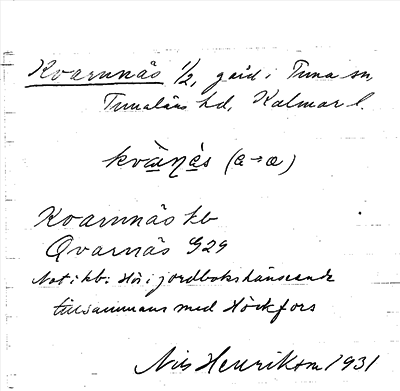 Kvarnnäs 1/2, gård i Tuna sn,
Tunaläns hd, Kalmar l.
kvàŋäs (a→æ)
Kvarnnäs kb
Qvarnäs G29
Not i kb: Hör i jordbokshänseende
tillsammans med Höckfors
Nils Henrikson 1931